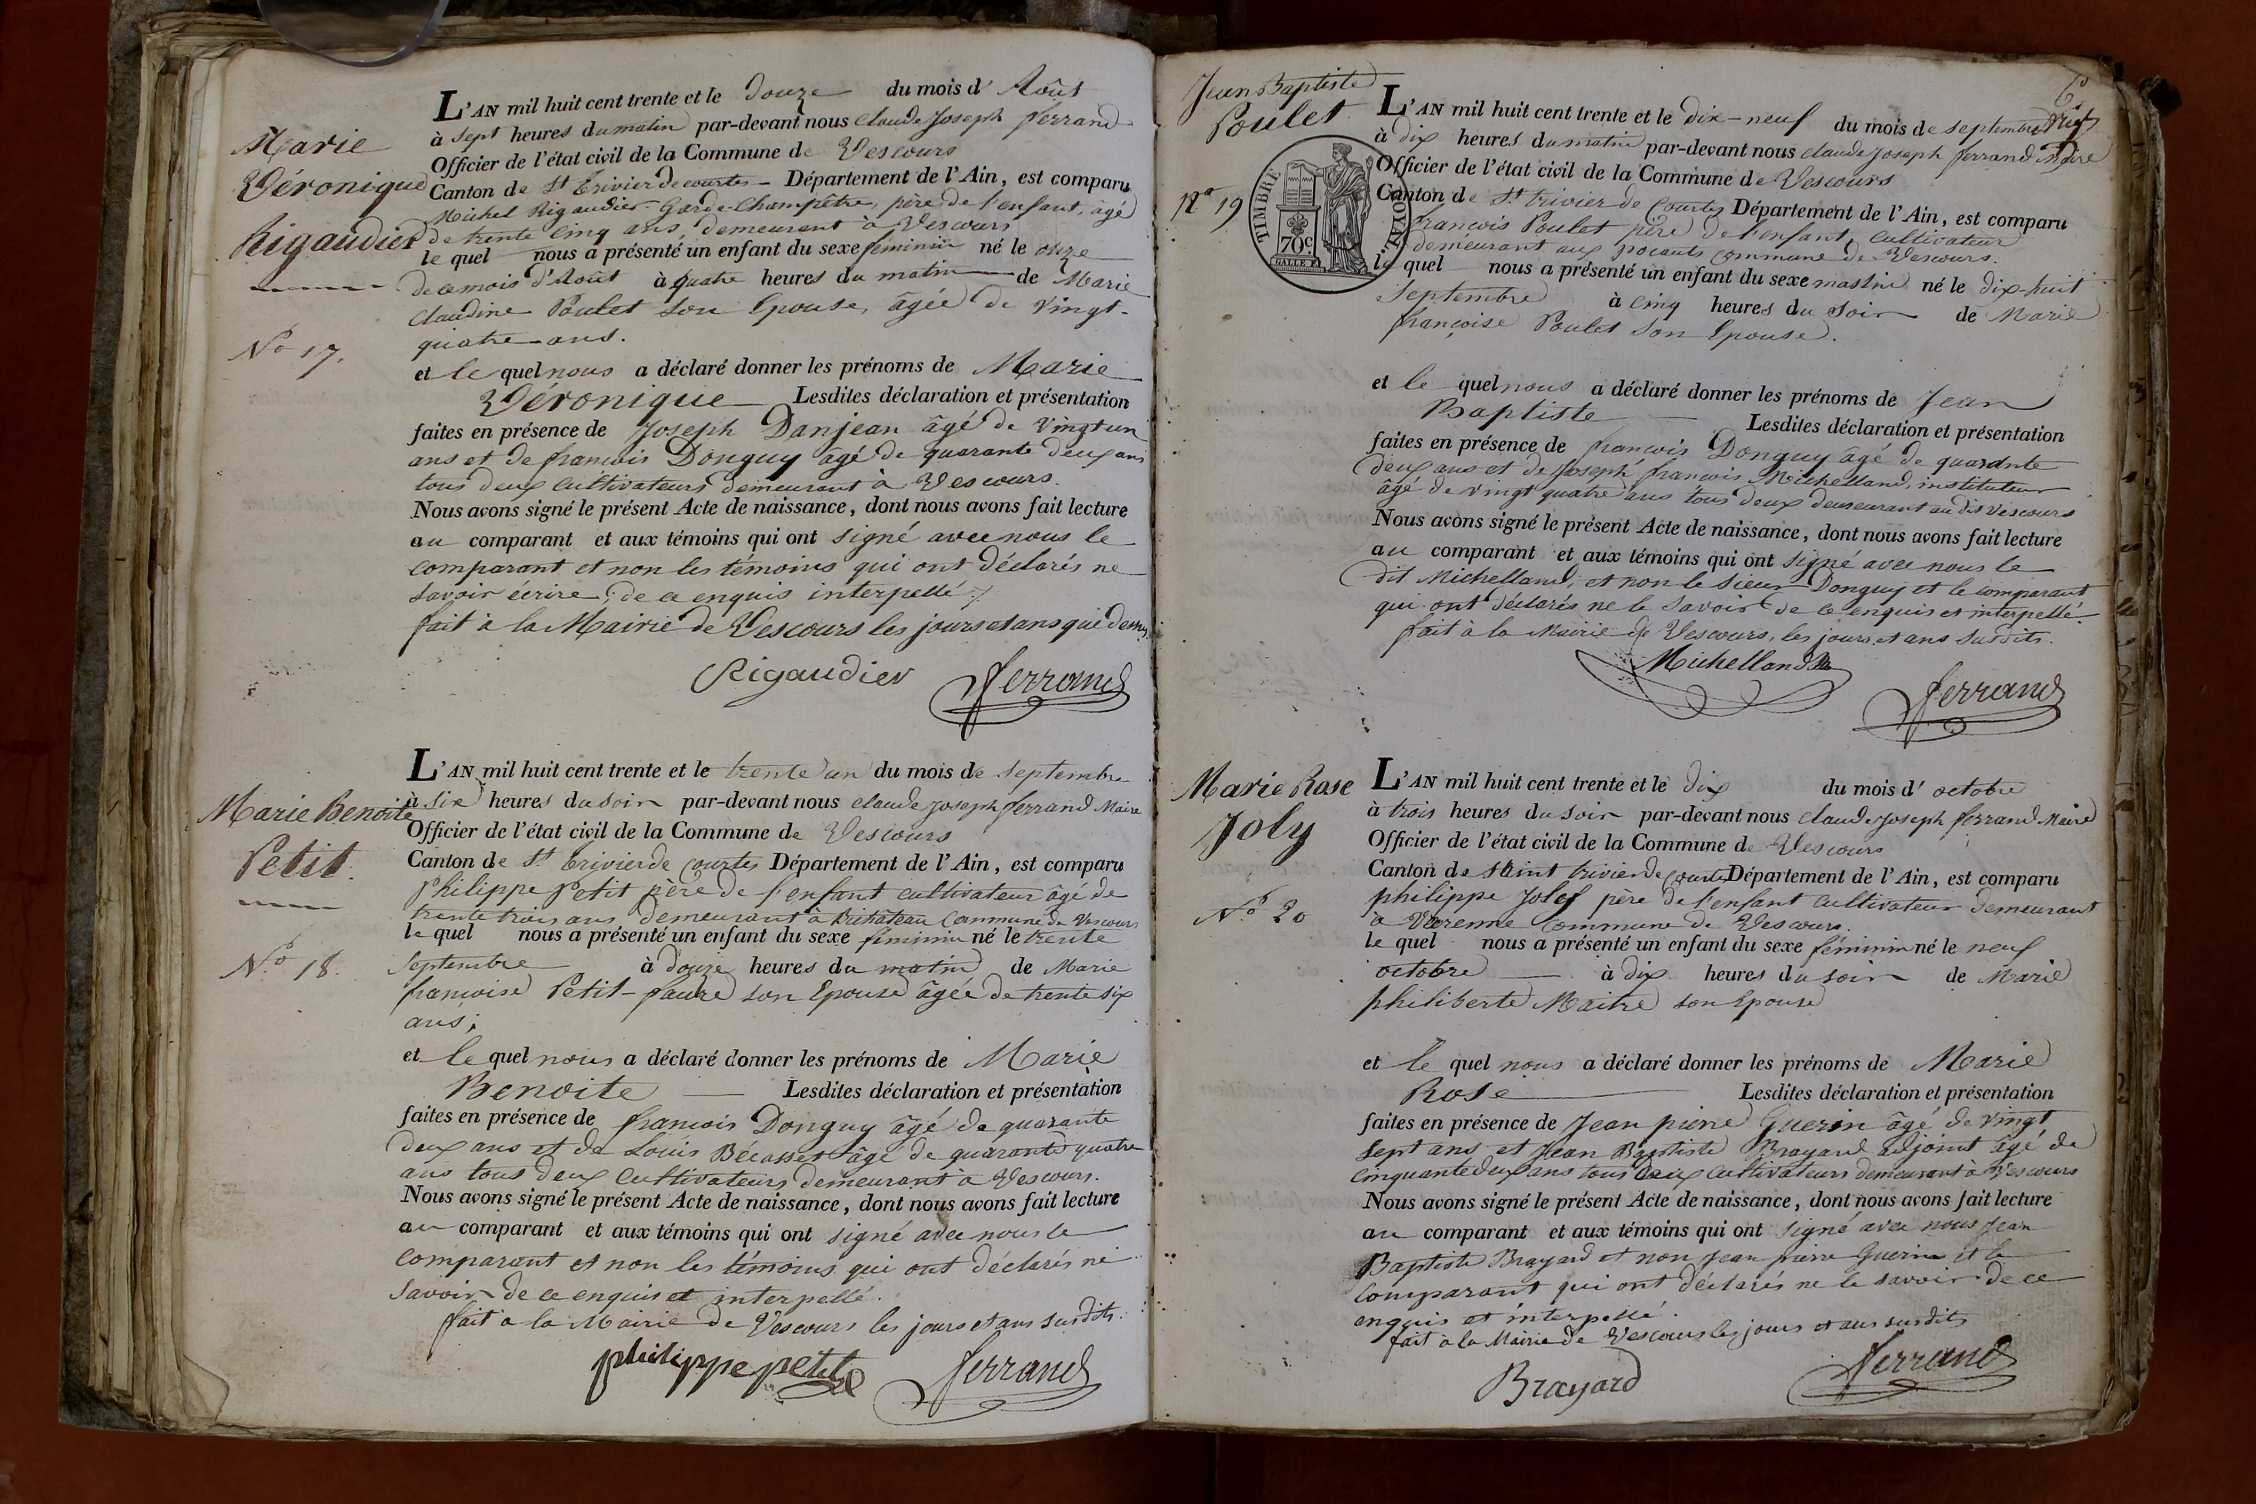 Marie
Véronique
Rigaudier
No 17.
L'AN mil huit cent trente et le douze du mois d'Août
à sept heures du matin par-devant nous Claude Joseph ferrand
Officier de l'état civil de la Commune de Vescours
Canton de St trivier de courtes Département de l'Ain, est comparu
Michel Rigaudier Garde-Champêtre, père de l'enfant, âgé
de trente cinq ans, demeurant à Vescours
le quel nous a présenté un enfant du sexe féminin né le onze
de ce mois d'Août à quatre heures du matin de Marie
Claudine Poulet son Epouse, âgée de vingt-
quatre ans.
et le quel nous a déclaré donner les prénoms de Marie
Véronique Lesdites déclaration et présentation
faites en présence de Joseph Danjean âgé de vingt un
ans et de francois Donguy âgé de quarante deux ans
tous deux cultivateurs demeurant à Vescours.
Nous avons signé le présent Acte de naissance, dont nous avons fait lecture
au comparant et aux témoins qui ont signé avec nous le
comparant et non les témoins qui ont déclarés ne
savoir écrire, de ce enquis interpellé
fait à la Mairie de Vescours les jours et ans que dessus
Rigaudier ferrand
Marie Benoite
Petit.
No 18.
L'AN mil huit cent trente et le trente un du mois de septembre
à six heures du soir par-devant nous claude Joseph ferrand Maire
Officier de l'état civil de la Commune de Vescours
Canton de St trivier de Courtes Département de l'Ain, est comparu
Philippe Petit père de l'enfant cultivateur âgé de
trente trois ans demeurant à commune de Vescours
le quel nous a présenté un enfant du sexe féminin né le trente
septembre à douze heures du matin de Marie
françoise Petit-faure son Epouse âgée de trente six
ans;
et le quel nous a déclaré donner les prénoms de Marie
Benoite Lesdites déclaration et présentation
faites en présence de francois Donguy âgé de quarante
deux ans et de Louis Bécasset âgé de quarante quatre
ans tous deux cultivateurs demeurant à Vescours.
Nous avons signé le présent Acte de naissance, dont nous avons fait lecture
au comparant et aux témoins qui ont signé avec nous le
comparant et non les témoins qui ont déclarés ne
savoir de ce enquis et interpellé.
fait a la Mairie de Vescours les jours et ans susdits.
philippe petit ferrand
Jean Baptiste
Poulet
No 19
TIMBRE ROYAL.
70c
GALLE F.
L'AN mil huit cent trente et le dix-neuf du mois de septembre
à dix heures du matin par-devant nous claude Joseph ferrand Maire
Officier de l'état civil de la Commune de Vescours
Canton de St trivier de Courtes Département de l'Ain, est comparu
francois Poulet père de l'enfant, cultivateur
demeurant aux commune de Vescours.
le quel nous a présenté un enfant du sexe maslin né le dix-huit
septembre à cinq heures du soir de Marie
françoise Poulet son Epouse.
et le quel nous a déclaré donner les prénoms de Jean
Baptiste Lesdites déclaration et présentation
faites en présence de francois Donguy âgé de quarante
deux ans et de Joseph françois Michelland, instituteur
âgé de vingt quatre ans tous deux demeurant au dit Vescours
Nous avons signé le présent Acte de naissance, dont nous avons fait lecture
au comparant et aux témoins qui ont signé avec nous le
dit Michelland, et non le sieur Donguy et le comparant
qui ont déclarés ne le savoir de ce enquis et interpellé.
fait à la Mairie de Vescours, les jours et ans susdits.
Michelland ferrand
Marie Rose
Joly
No 20
L'AN mil huit cent trente et le dix du mois d'octobre
à trois heures du soir par-devant nous claude Joseph ferrand Maire
Officier de l'état civil de la Commune de Vescours
Canton de saint trivier de Courtes Département de l'Ain, est comparu
philippe Joly père de l'enfant cultivateur demeurant
à Varenne commune de Vescours.
le quel nous a présenté un enfant du sexe féminin né le neuf
octobre à dix heures du soir de Marie
philiberte Maitre son Epouse
et le quel nous a déclaré donner les prénoms de Marie
Rose Lesdites déclaration et présentation
faites en présence de Jean pierre Guerin âgé de vingt
sept ans et Jean Baptiste Brayard adjoint âgé de
cinquante deux ans tous deux cultivateurs demeurant à Vescours
Nous avons signé le présent Acte de naissance, dont nous avons fait lecture
au comparant et aux témoins qui ont signé avec nous Jean
Baptiste Brayard et non Jean pierre Guerin et le
comparant qui ont déclarés ne le savoir de ce
enquis et interpellé.
fait à la Mairie de Vescours les jours et ans susdits
Brayard ferrand